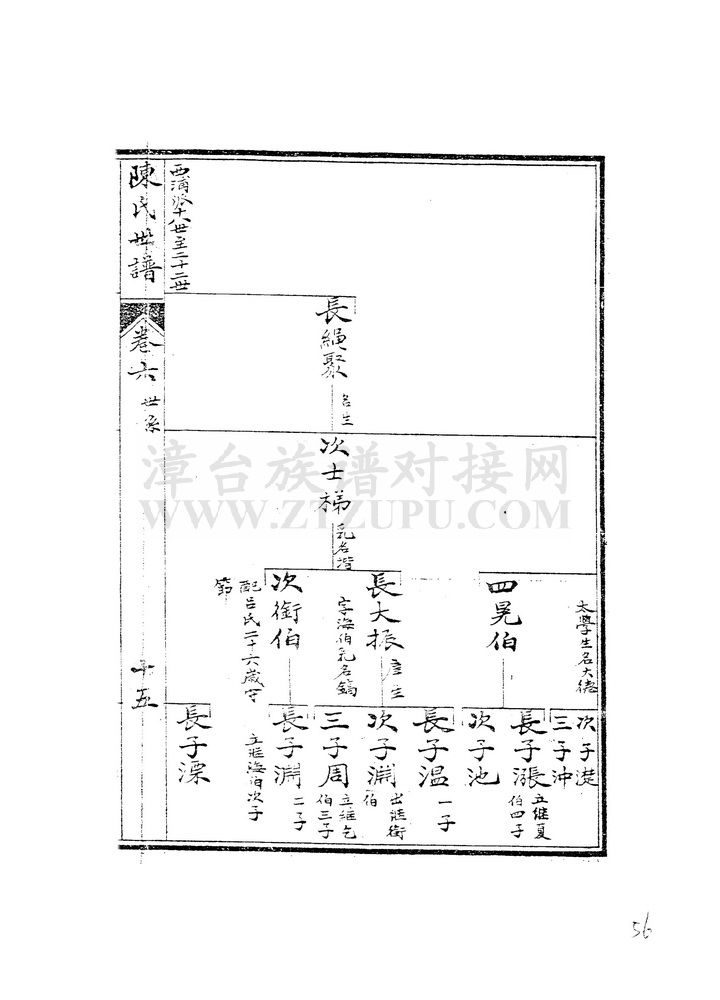 陳氏世譜
卷六 世系
十五
西浦派十八世至二十二世
長繩聚
名生
次士梯
乳名階
四晃伯
太學生名大德
長大振
字海伯乳名鎬
庠生
次衔伯
配呂氏二十六歲守
節
次子漟
三子沖
長子漲
立继夏
伯四子
次子池
長子温
一子
次子淵
出继衔
伯
三子周
立继
伯三子
長子淵
二子
立继海伯次子
長子溧
漳台族谱对接网
WWW.ZTZUPU.COM
56